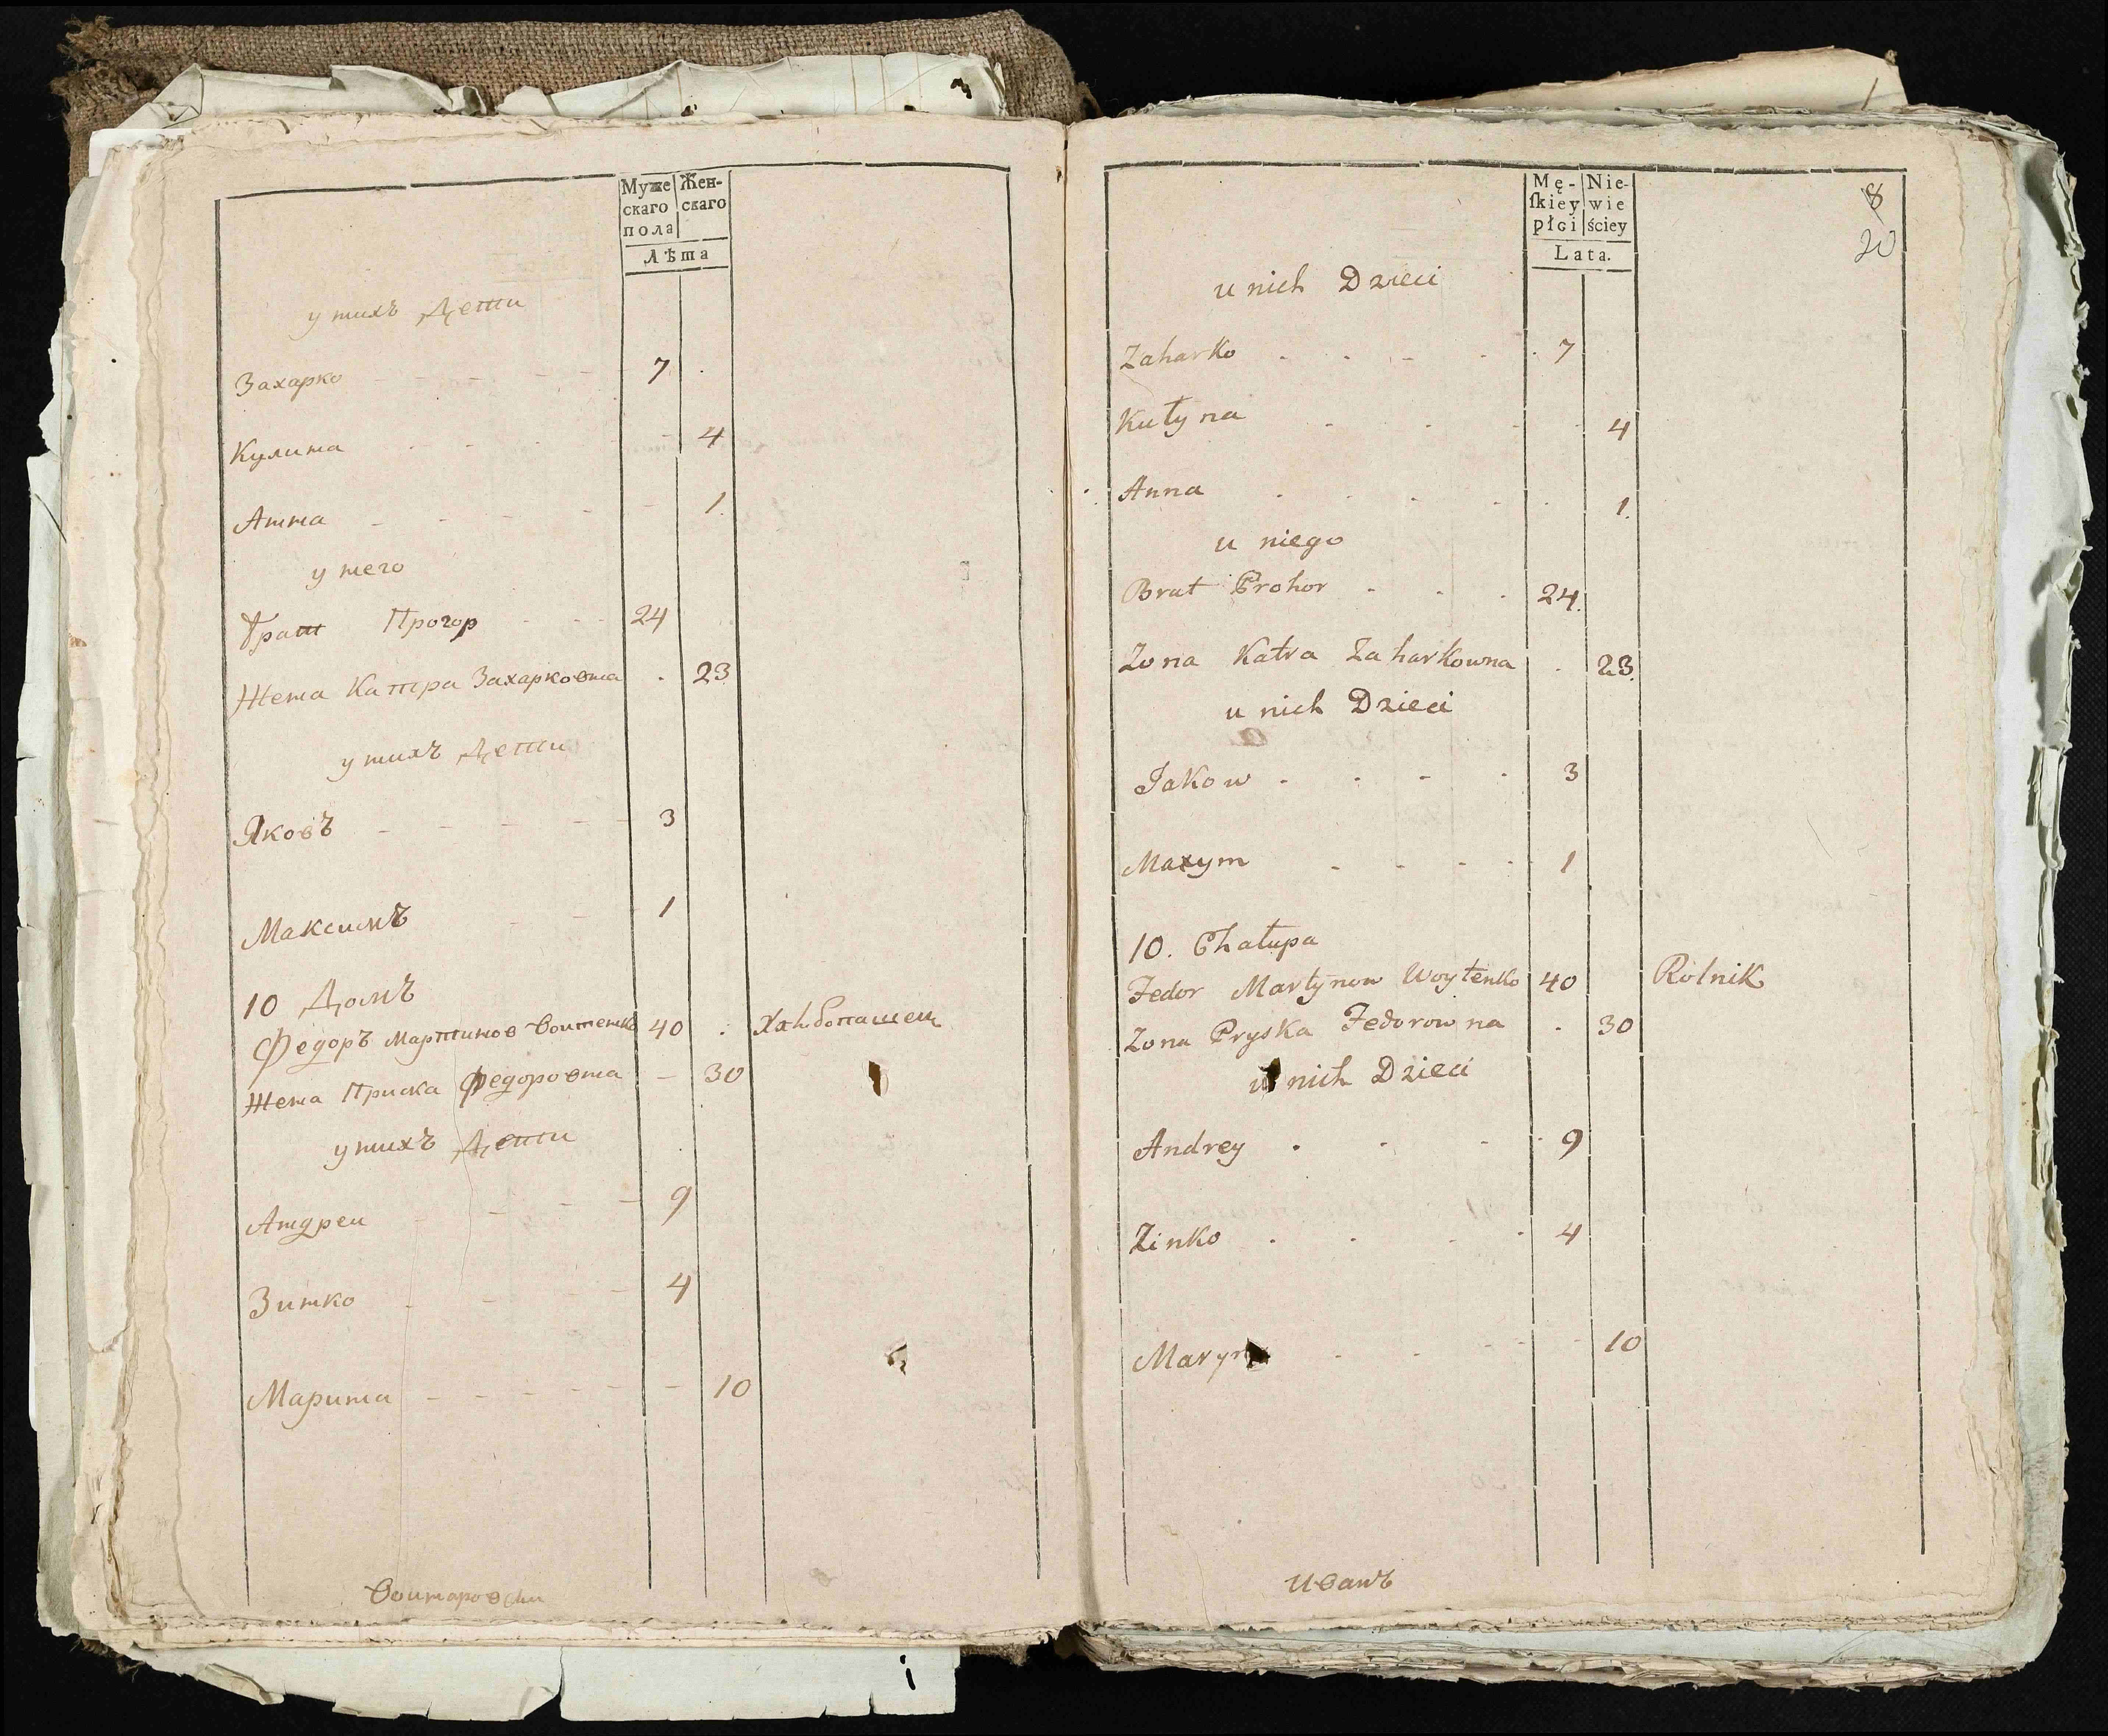 Муже
скаго
пола
Жен-
скаго
Лѣта
у нихъ Дети
Захарко 7
Кулина 4
Анна 1
у него
Брат Прогор 24
Жена Катра Захарковна 23
у нихъ Дети
Яковъ 3
Максимъ 1
10 Домъ
Федоръ Мартинов Воитенко 40 Хлѣбопашец
Жена Приска Федоровна 30
у нихъ Дети
Андреи 9
Зинко 4
Марина 10
Mę-
ſkiey
płci
Nie-
wie
ściey
Lata.
8
20
u nich Dzieci
Zaharko 7
Kułyna 4
Anna 1.
u niego
Brat Prohor 24.
Zona Katra Zaharkowna 23.
u nich Dzieci
Jakow 3
Maxym 1
10. Chałupa
Fedor Martynow Woytenko 40 Rolnik
Zona Pryska Fedorowna 30
u nich Dzieci
Andrey 9
Zinko 4
Maryna 10
Иванъ